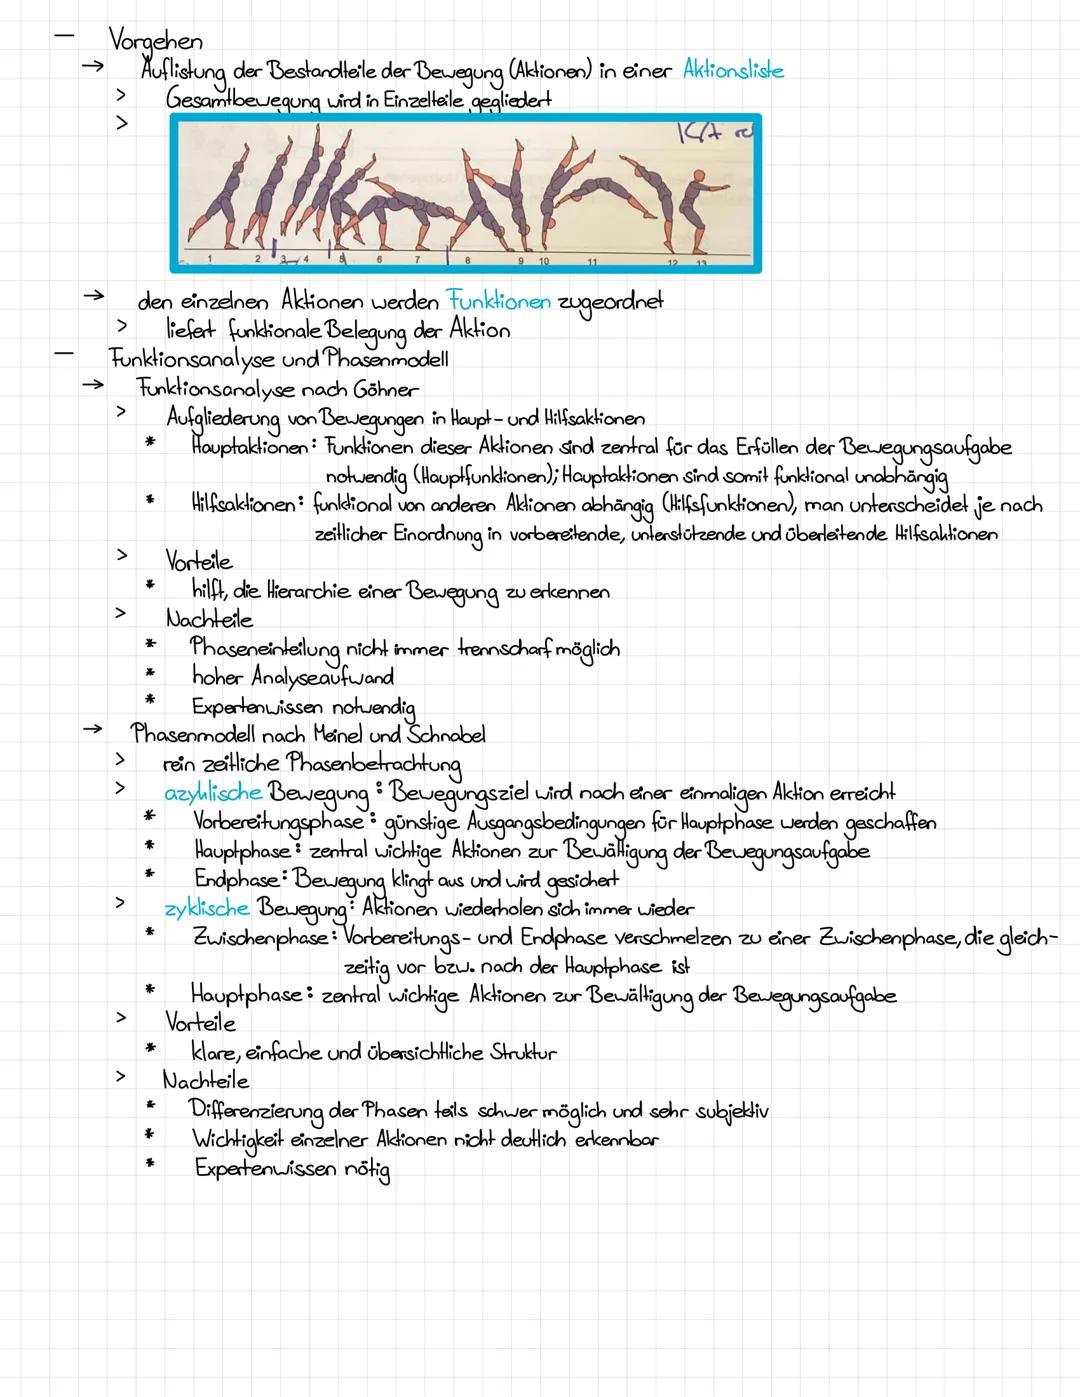 — Vorgehen
→ Auflistung der Bestandteile der Bewegung (Aktionen) in einer Aktionsliste
> Gesamtbewegung wird in Einzelteile gegliedert
>
1 2 3 4 5 6 7 8 9 10 11 12 13
→ den einzelnen Aktionen werden Funktionen zugeordnet
> liefert funktionale Belegung der Aktion
— Funktionsanalyse und Phasenmodell
→ Funktionsanalyse nach Göhner
> Aufgliederung von Bewegungen in Haupt- und Hilfsaktionen
* Hauptaktionen: Funktionen dieser Aktionen sind zentral für das Erfüllen der Bewegungsaufgabe
notwendig (Hauptfunktionen); Hauptaktionen sind somit funktional unabhängig
* Hilfsaktionen: funktional von anderen Aktionen abhängig (Hilfsfunktionen), man unterscheidet je nach
zeitlicher Einordnung in vorbereitende, unterstützende und überleitende Hilfsaktionen
> Vorteile
* hilft, die Hierarchie einer Bewegung zu erkennen
> Nachteile
* Phaseneinteilung nicht immer trennscharf möglich
* hoher Analyseaufwand
* Expertenwissen notwendig
→ Phasenmodell nach Meinel und Schnabel
> rein zeitliche Phasenbetrachtung
> azyklische Bewegung: Bewegungsziel wird nach einer einmaligen Aktion erreicht
* Vorbereitungsphase: günstige Ausgangsbedingungen für Hauptphase werden geschaffen
* Hauptphase: zentral wichtige Aktionen zur Bewältigung der Bewegungsaufgabe
* Endphase: Bewegung klingt aus und wird gesichert
> zyklische Bewegung: Aktionen wiederholen sich immer wieder
* Zwischenphase: Vorbereitungs- und Endphase verschmelzen zu einer Zwischenphase, die gleich-
zeitig vor bzw. nach der Hauptphase ist
* Hauptphase: zentral wichtige Aktionen zur Bewältigung der Bewegungsaufgabe
> Vorteile
* klare, einfache und übersichtliche Struktur
> Nachteile
* Differenzierung der Phasen teils schwer möglich und sehr subjektiv
* Wichtigkeit einzelner Aktionen nicht deutlich erkennbar
* Expertenwissen nötig